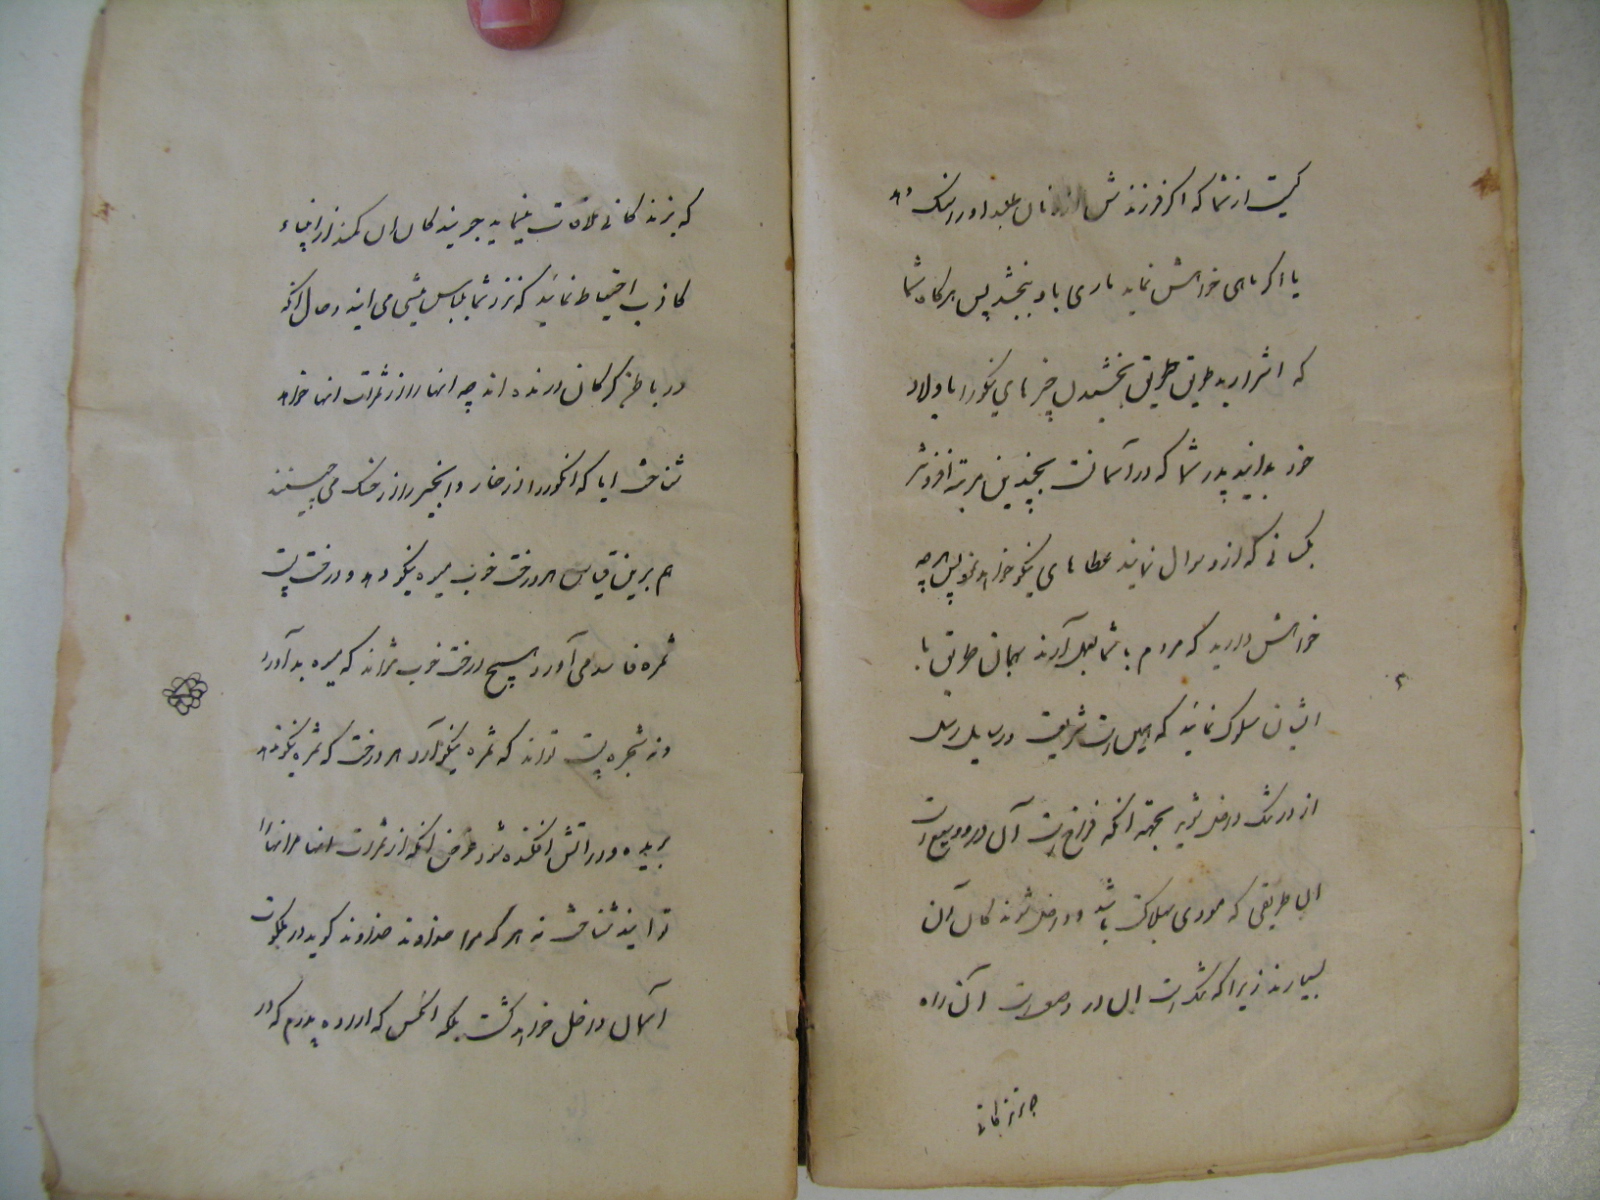 کیست از شما که اگر فرزندش از او نان طلبد او را سنگ دهد
یا اگر ماهی خواهش نماید ماری باو بخشد پس هر گاه شما
که اشرارید طریق طریق بخشیدن چیزهای نیکو را باولاد
خود بدانید پدر شما که در آسمانست بچندین مرتبه افزونتر
بکسانی که از و سوال نمایند عطاهای نیکو خواهد نمود پس هر چه
خواهش دارید که مردم با شما بعمل آرند بهمان طریق با
ایشان سلوک نمائید که همین است شریعت و رسایل رسل
از در تنگ داخل شوید بجهته آنکه فراخ است آن در و وسیع است
آن طریقی که مودی بهلاکت باشد و داخل شوندکان آن
بسیارند زیرا که تنگ است آن در و صعب است آن راه
که بزندکانی ملاقات مینماید جویندکان آن کمند از انبیاء
کاذب احتیاط نمائید که نزد شما بلباس میشی می آیند و حال آنکه
در باطن کرکان درنده اند چه انها را از ثمرات انها خواهد
شناخت ایا که انکور را از خار و انجیر را از خسک می چینند
هم برین قیاس هر درخت خوب میوه نیکو دهد و درخت پست
ثمره فاسد می آورد هیچ درخت خوب نتواند که میوه بد آورد
و نه شجره پست تواند که ثمره نیکو آورد هر درخت که ثمره نیکو ندهد
بریده و در اتش افکنده شود غرض آنکه از ثمرات انها مر انها را
توانید شناخت نه هر که مرا خداوند خداوند کوید در ملکوت
آسمان داخل خواهد کشت بلکه انکس که اراده پدرم که در